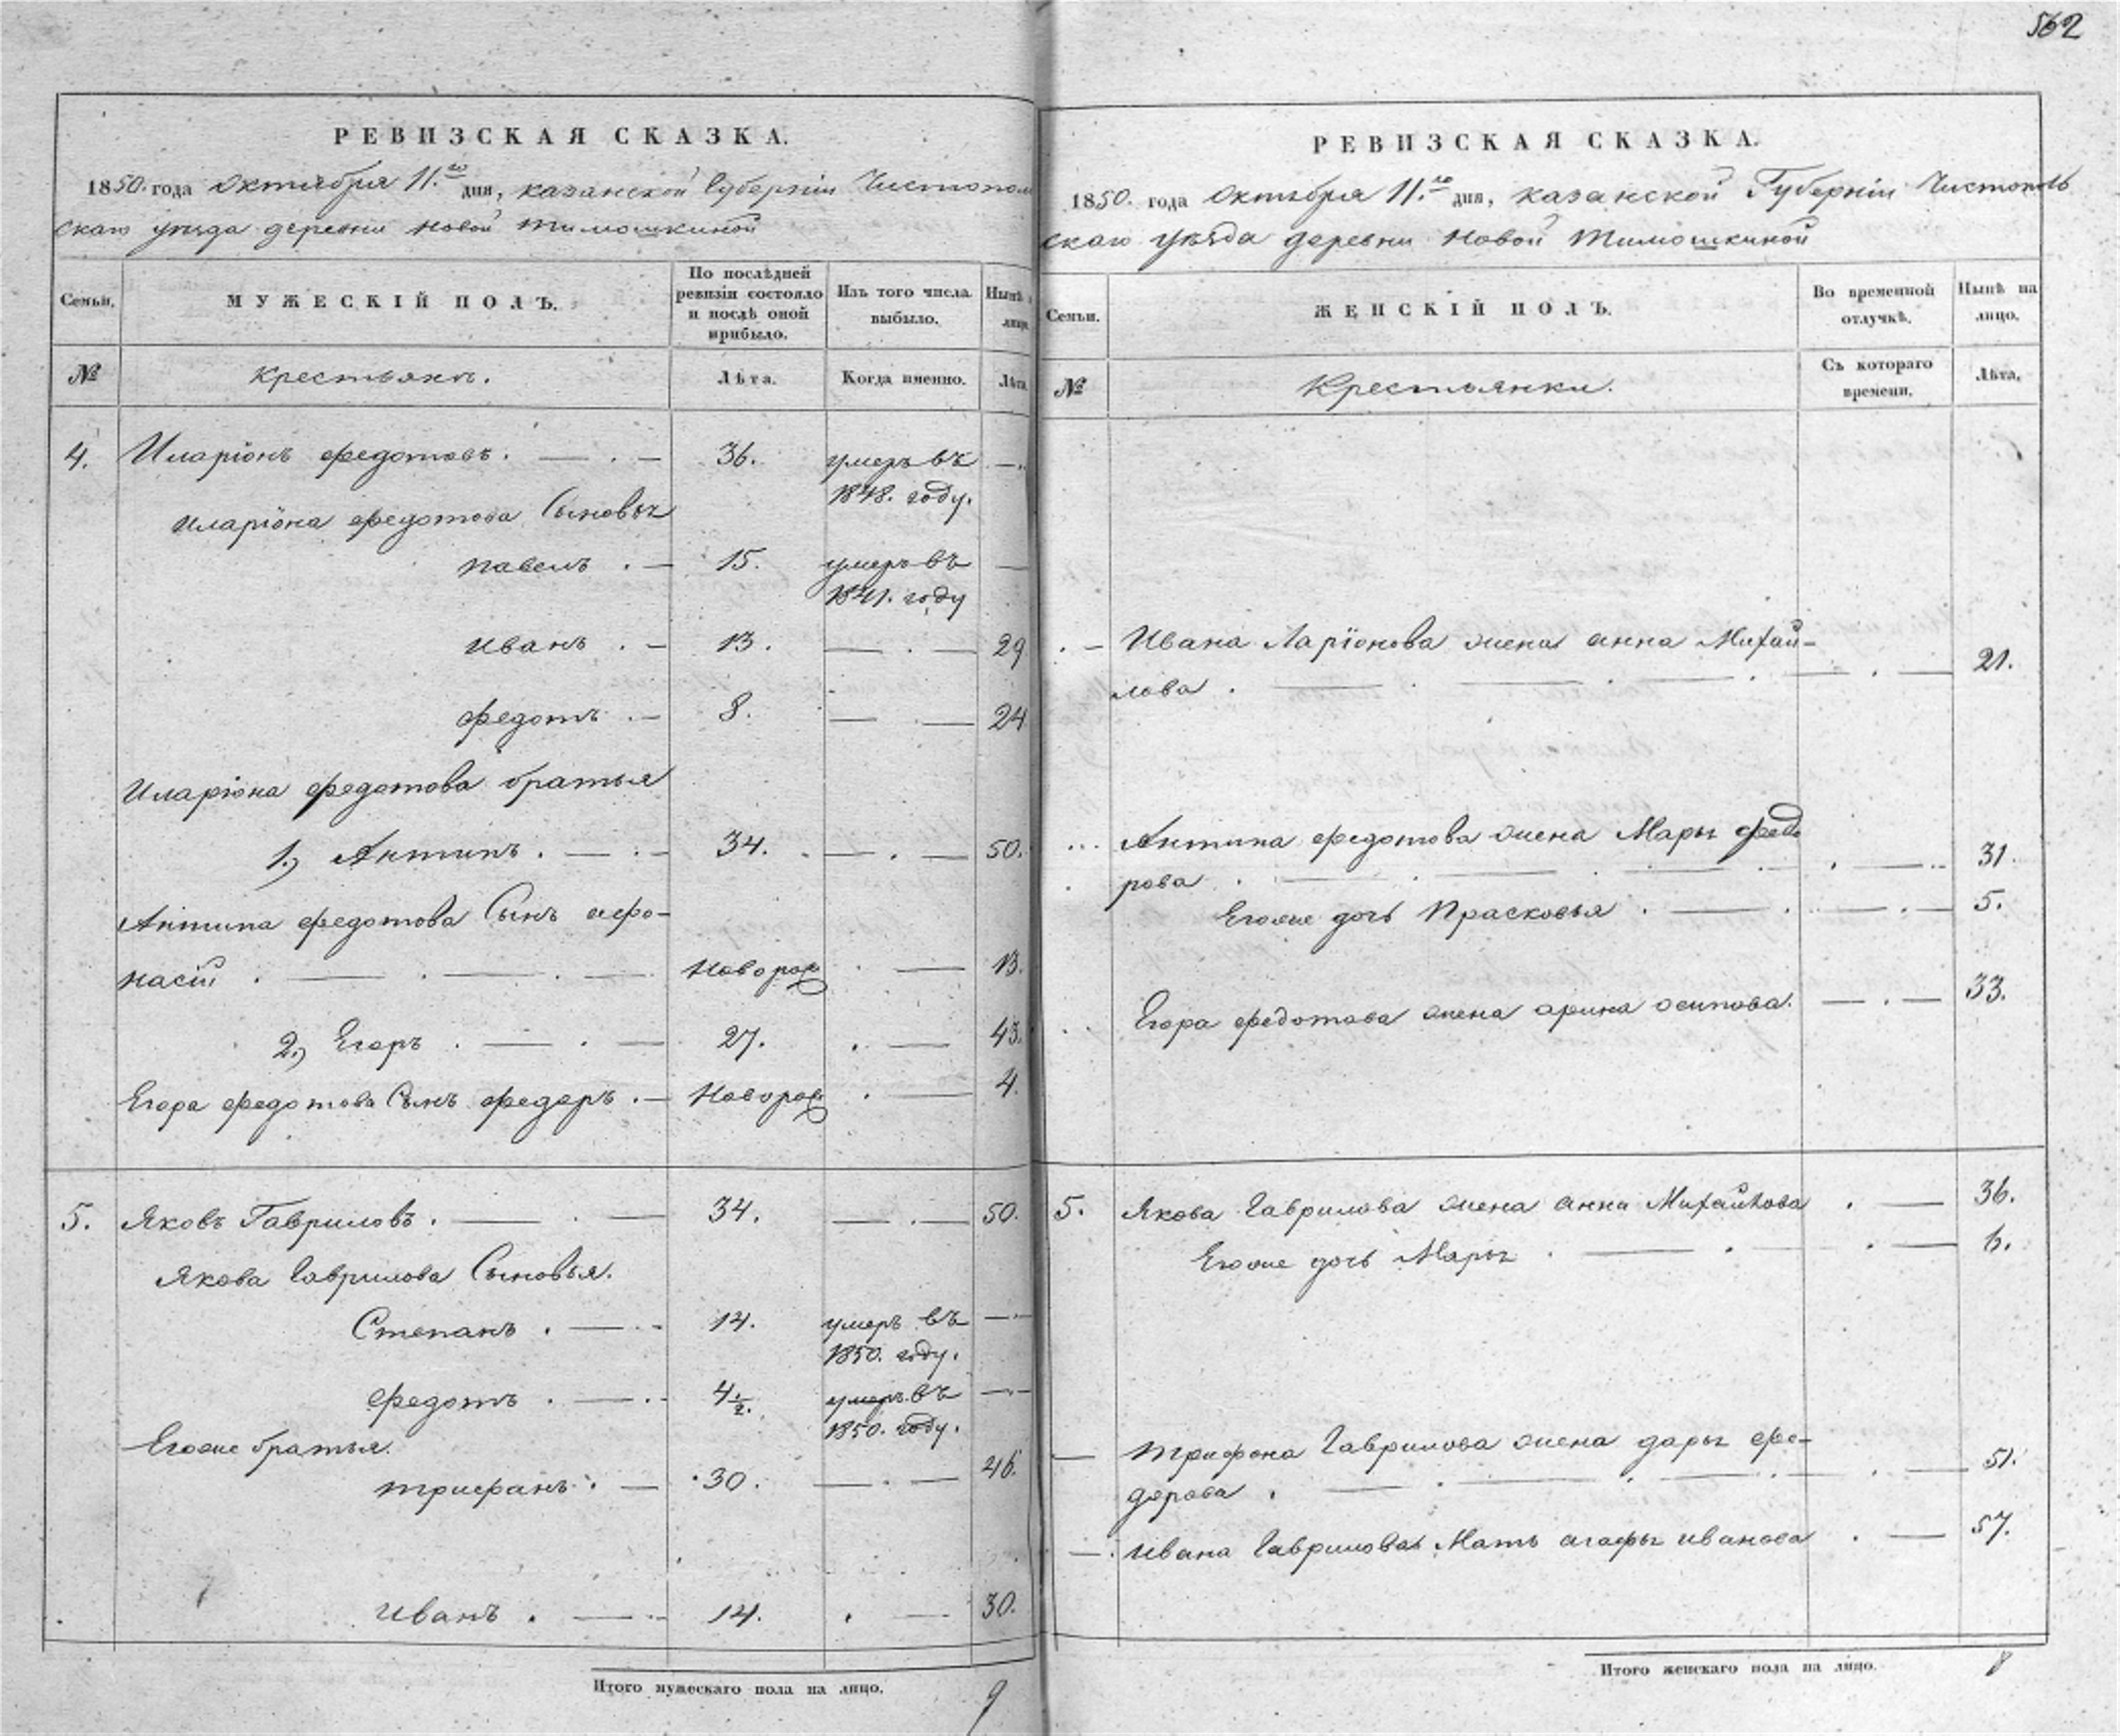 562
РЕВИЗСКАЯ СКАЗКА.
1850. года октября 11.го дня, казанской Губерніи Чистополь
скаго уезда деревни новой тимошкиной
Семьи. МУЖЕСКІЙ ПОЛЪ. По послѣдней ревизіи состояло и послѣ оной прибыло. Изъ того числа выбыло. Нынѣ на лицо.
№ крестьянъ. Лѣта. Когда именно. Лѣта.
4. Иларіонъ федотовъ. 36. умеръ въ
1848. году.
иларіона федотова Сыновья
павелъ 15. умеръ въ
1841. году
иванъ 13. 29
федотъ 8. 24
Иларіона федотова братья
1.) Антипъ. 34. 50.
Антипа федотова Сынъ афо-
насій новорож 13.
2.) Егоръ 27. 43.
Егора федотова Сынъ федоръ. новорож 4.
5. Яковъ Гавриловъ. 34. 50.
Якова Гаврилова Сыновья.
Степанъ 14. умеръ въ
1850. году.
федотъ 4 1/2. умеръ въ
1850. году.
Егоже братья.
трифанъ 30. 46.
иванъ. 14. 30.
Итого мужескаго пола на лицо. 9
РЕВИЗСКАЯ СКАЗКА.
1850. года октября 11.го дня, казанской Губерніи Чистополь
скаго уѣзда деревни новой тимошкиной
Семьи. ЖЕНСКІЙ ПОЛЪ. Во временной отлучкѣ. Нынѣ на лицо.
№ Крестьянки. Съ котораго времени. Лѣта.
Ивана Ларіонова жена анна Михай-
лова 21.
Антипа федотова жена Марья федо
рова 31.
Егоже дочь Прасковья 5.
Егора федотова жена арина осипова. 33.
5. Якова Гаврилова жена анна Михайлова 36.
Егоже дочь Марья 6.
трифона Гаврилова жена дарья фе-
дорова 51.
ивана Гаврилова Мать агафья иванова 57.
Итого женскаго пола на лицо. 8